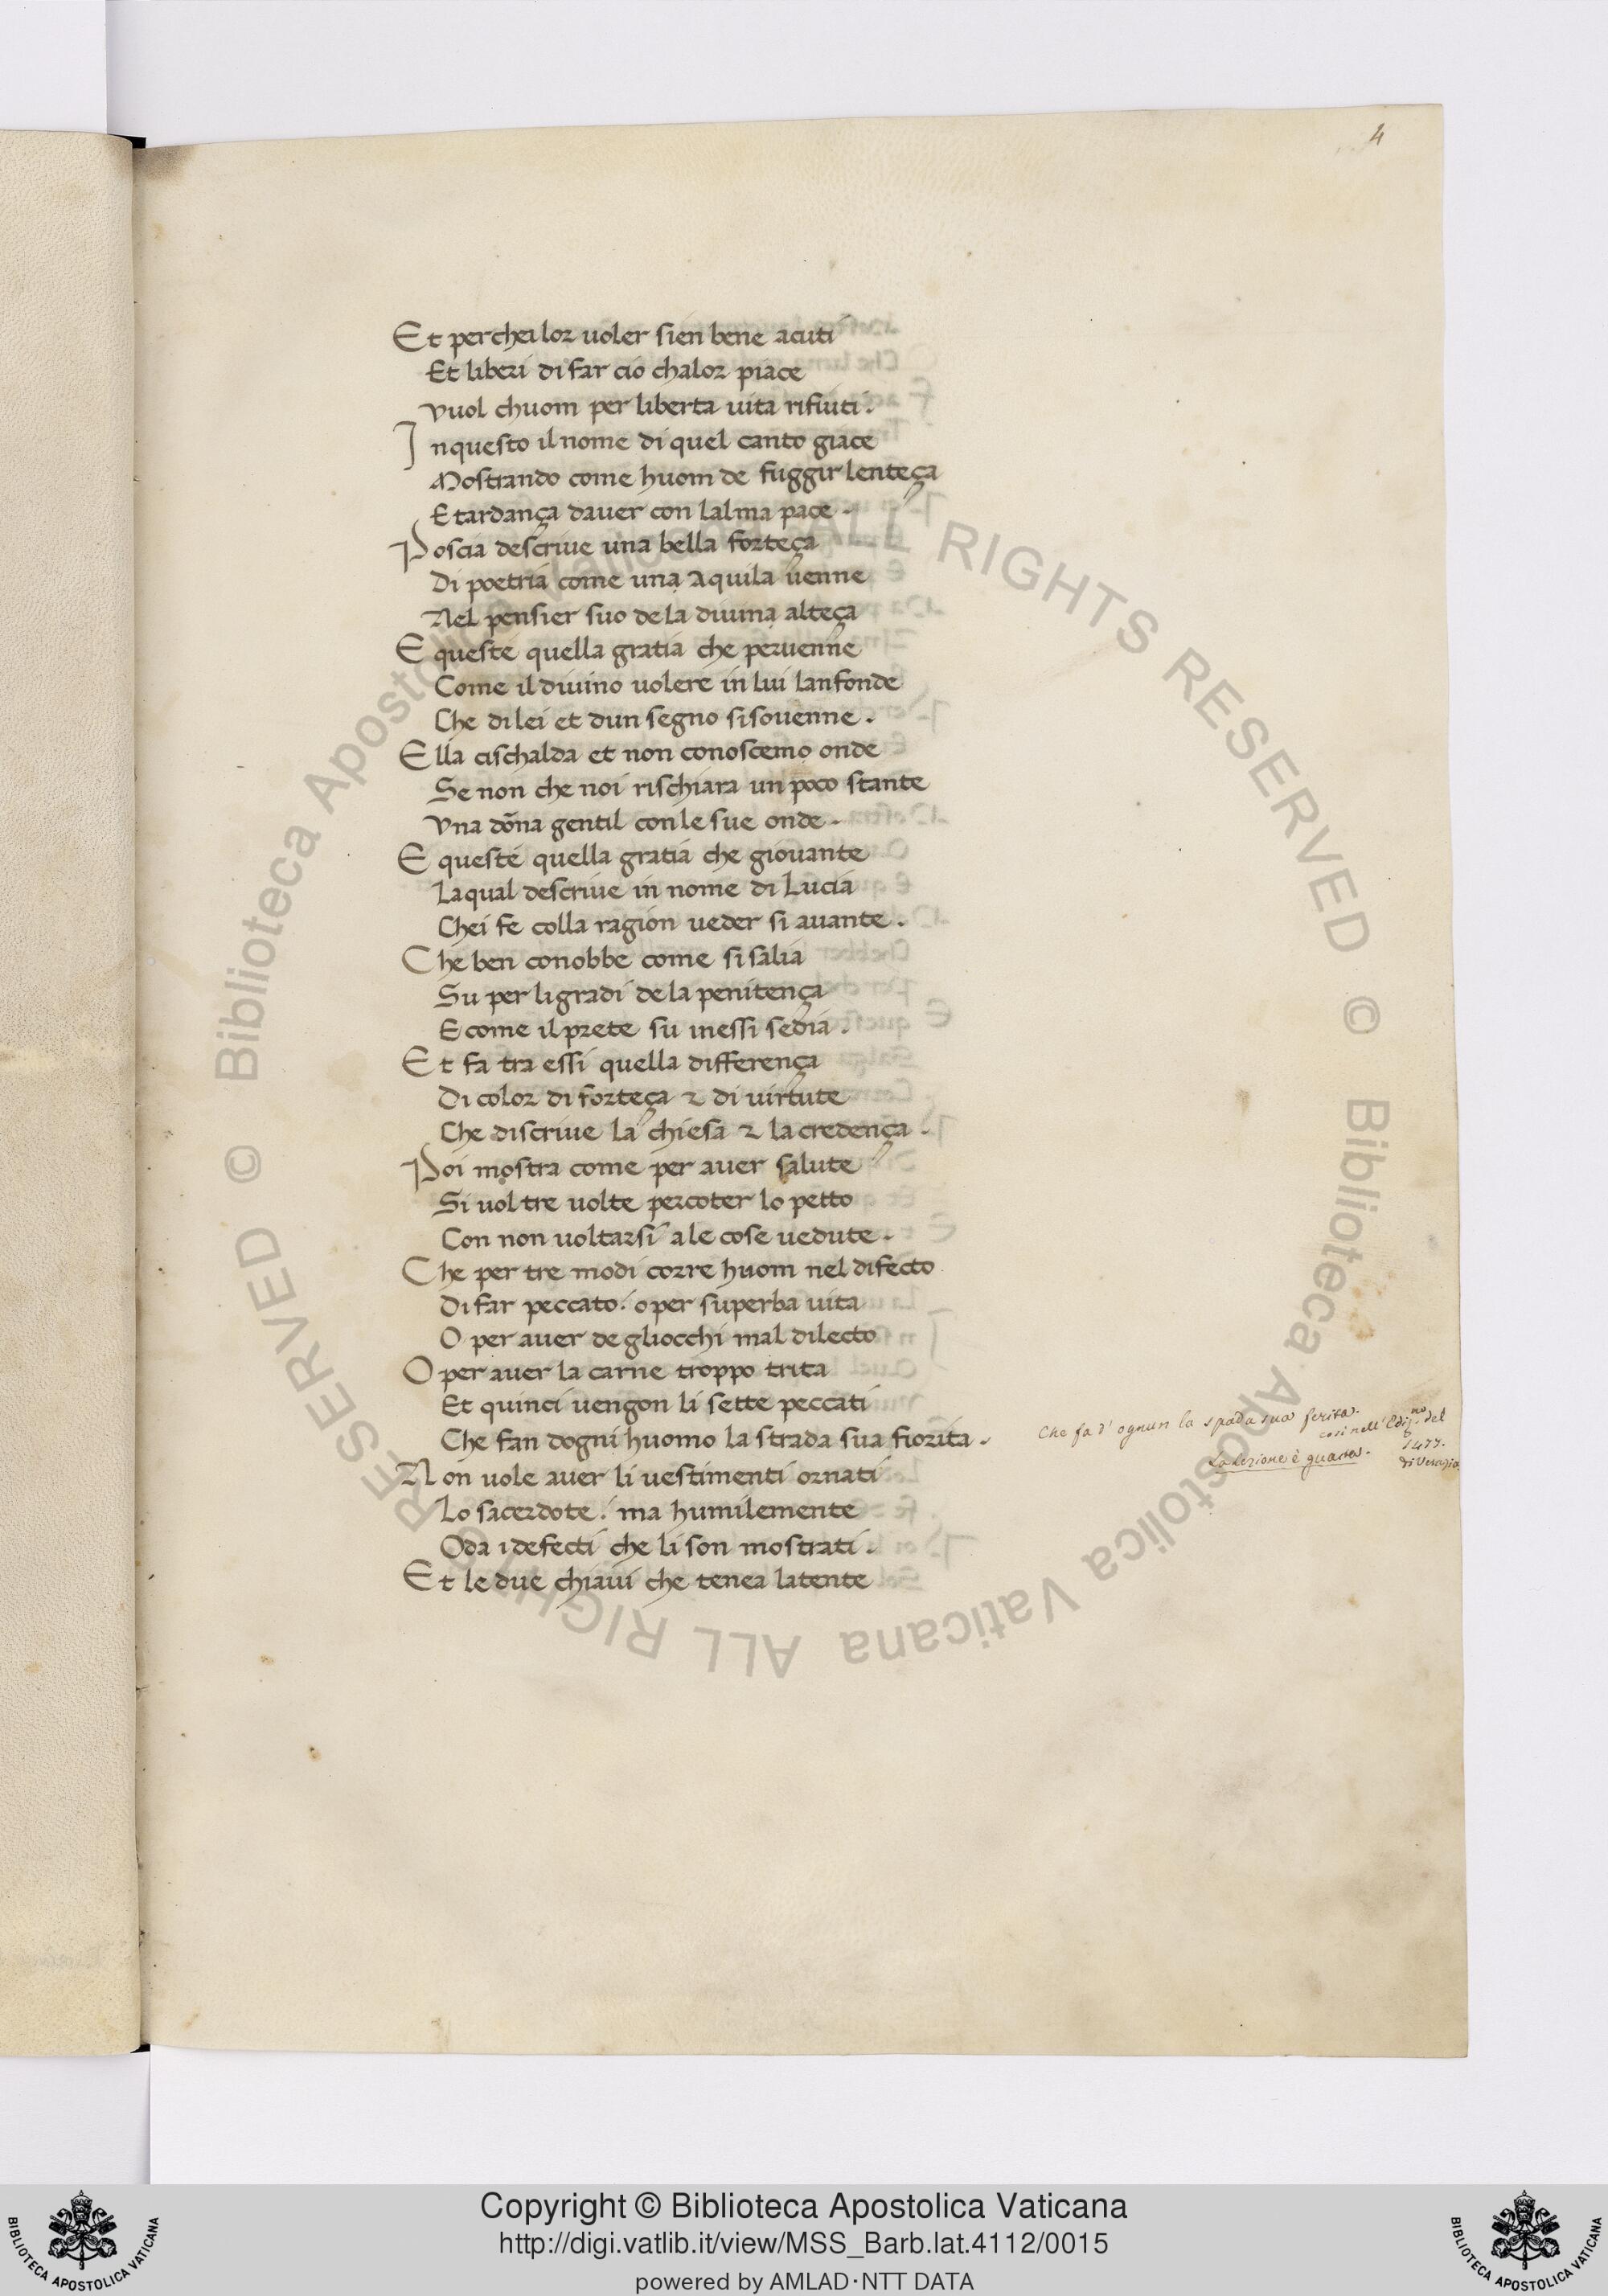 4
Et perchei lor uoler sien bene acuti
Et liberi di far cio chalor piace
Vuol chuom per liberta uita rifiuti.
Inquesto il nome di quel canto giace
Mostrando come huom de fuggir lenteça
E tardança dauer con lalma pace.
Poscia descriue una bella forteça
Di poetria come una aquila uenne
Nel pensier suo de la diuina alteça
E queste quella gratia che peruenne
Come il diuino uolere in lui lanfonde
Che di lei et dun segno si souenne.
Ella cischalda et non conoscemo onde
Se non che noi rischiara un poco stante
Vna dōna gentil con le sue onde.
E queste quella gratia che giouante
La qual descriue in nome di Lucia
Chei fe colla ragion ueder si auante.
Che ben conobbe come si salia
Su per li gradi de la penitença
E come il prete su inessi sedia.
Et fa tra essi quella differença
Di color di forteça ⁊ di uirtute
Che discriue la chiesa ⁊ la credença.
Poi mostra come per auer salute
Si uol tre uolte percoter lo petto
Con non uoltarsi a le cose uedute.
Che per tre modi corre huom nel difecto
Di far peccato. o per superba uita
O per auer de gliocchi mal dilecto
O per auer la carne troppo trita
Et quinci uengon li sette peccati
Che fan dogni huomo la strada sua fiorita.
Che fa d'ognun la spada sua ferita.
cosi nell' Ediz.no del
1477.
di Venezia
La lezione è guasta.
Non uole auer li uestimenti ornati
Lo sacerdote. ma humilemente
Oda i defecti che li son mostrati.
Et le due chiaui che tenea latente
© Biblioteca Apostolica Vaticana ALL RIGHTS RESERVED
© Biblioteca Apostolica Vaticana ALL RIGHTS RESERVED
BIBLIOTECA APOSTOLICA VATICANA
Copyright © Biblioteca Apostolica Vaticana
http://digi.vatlib.it/view/MSS_Barb.lat.4112/0015
powered by AMLAD·NTT DATA
BIBLIOTECA APOSTOLICA VATICANA